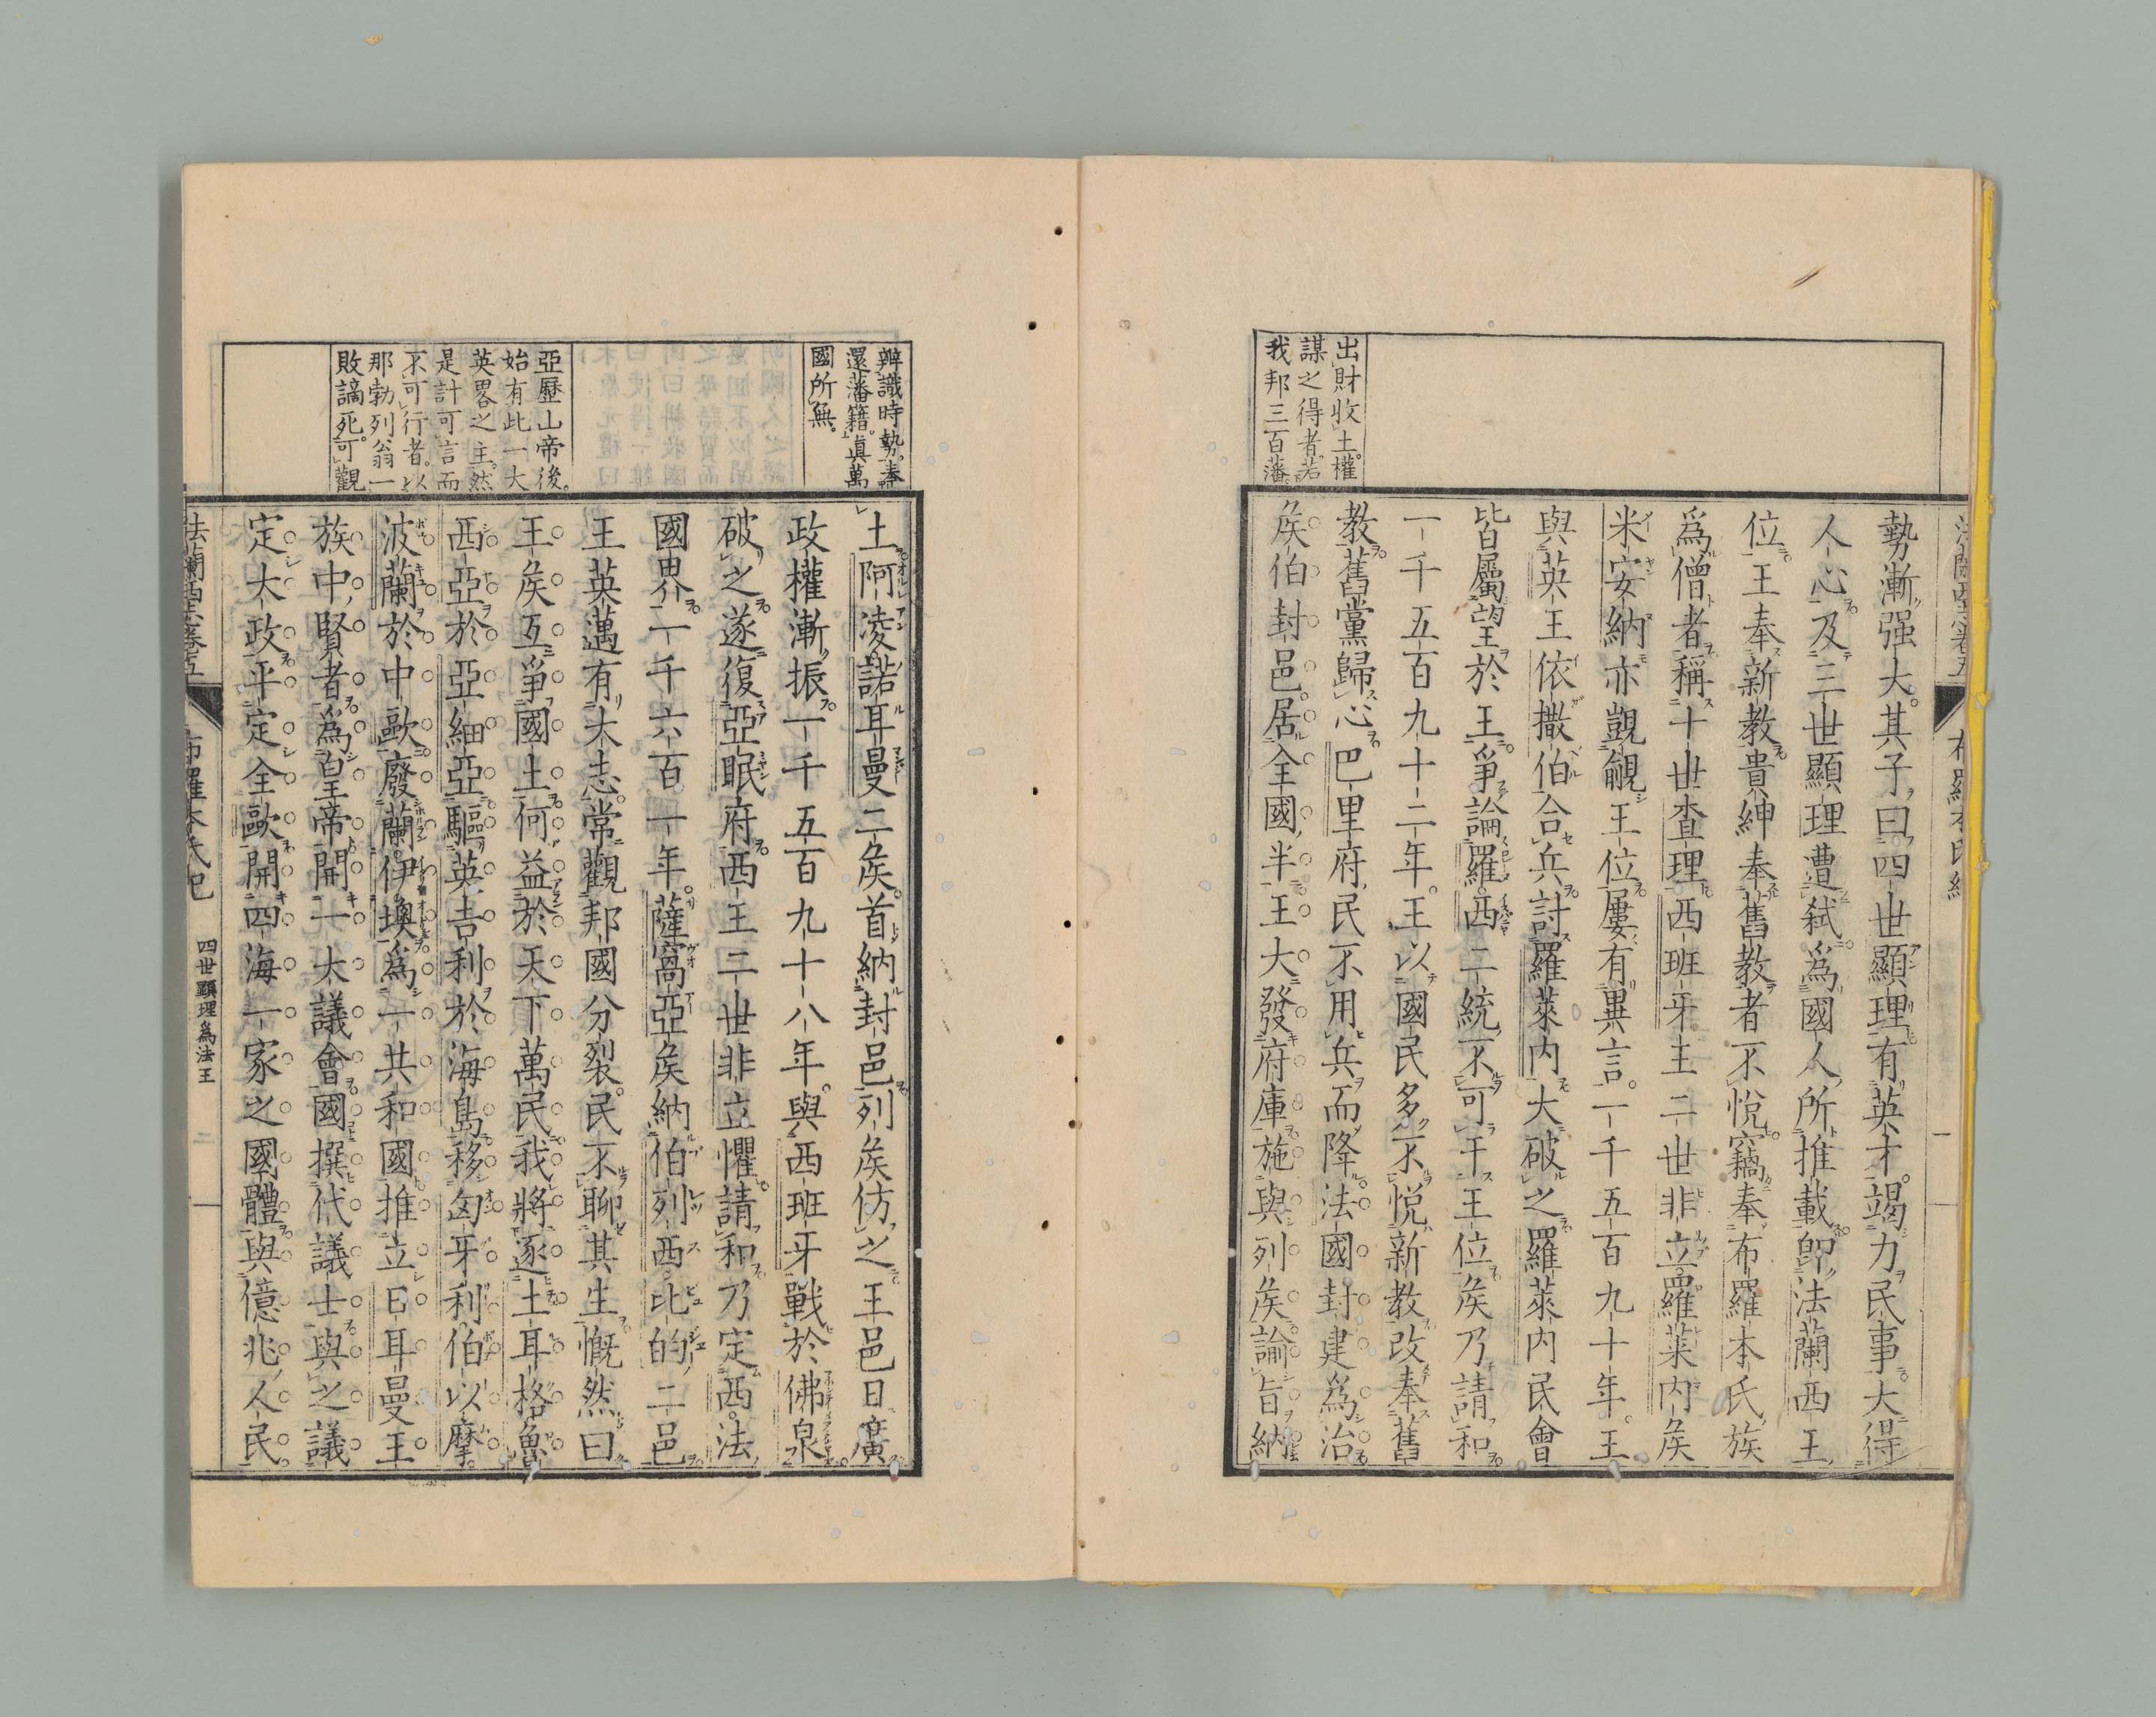 出財收土權
謀之得者若
我邦三百藩
勢漸强大。其子曰四世顯理有英才。竭力民事大得
人心及三世顯理遭弑爲國人所推載卽法蘭西王
位王奉新教貴紳奉舊教者不悅竊奉布羅本氏族
爲僧者稱十世査理西班牙王二世非立羅萊内矦
米安納亦覬覦王位屢有異言。一千五百九十年。王
與英王依撒伯合兵討羅萊内大破之羅萊内民會
皆屬望於王爭論羅西二統不可干王位矦乃請和
一千五百九十二年。王以國民多不悅新教改奉舊
教舊黨歸心巴里府民不用兵而降法國封建爲治
矦伯封邑居全國半王大發府庫施與列矦論旨納
辨識時勢奉
還藩籍眞萬
國所無。
亞歷山帝後。
始有此一大
英畧之主。然
是計可言而
不可行者。以
那勃列翁一
敗謫死。可觀
土阿淩諾耳曼二矦。首納封邑列矦仿之王邑日廣
政權漸振一千五百九十八年。與西班牙戰於佛泉
破之遂復亞眠府西王二世非立懼請和乃定西法
國界一千六百一年。薩窩亞矦納伯列西比的二邑
王英邁有大志。常觀邦國分裂。民不聊其生慨然曰
王矦互爭國土何益於天下萬民我將逐土耳格魯
西亞於亞細亞驅英吉利於海島移匈牙利伯以摩
波蘭於中歐廢蘭伊墺爲一共和國推立日耳曼王
族中賢者爲皇帝開一大議會國撰代議士與之議
定大政平定全歐開四海一家之國體與億兆人民
法蘭西志卷五
布羅本氏紀
四世顯理爲法王
二